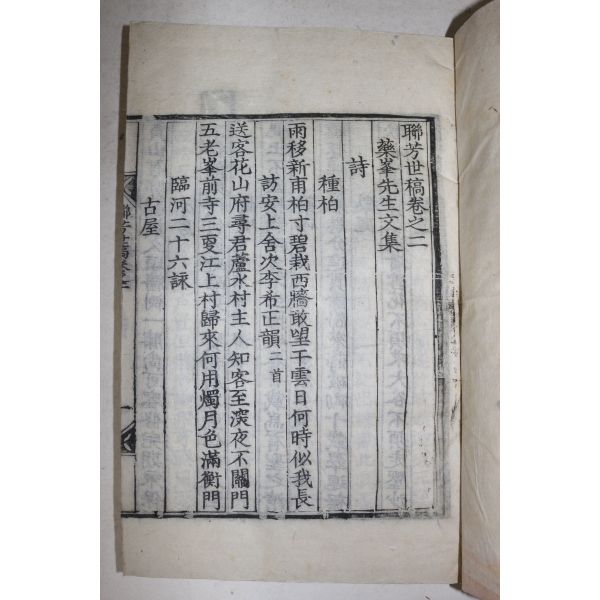 聯芳世稿卷之二
藥峯先生文集
詩
種柏
雨移新甫柏寸碧栽西牆敢望干雲日何時似我長
訪安上舍次李希正韻二首
送客花山府尋君蘆水村主人知客至深夜不關門
五老峯前寺三更江上村歸來何用燭月色滿衡門
臨河二十六詠
古屋
聯芳世稿卷之二
一